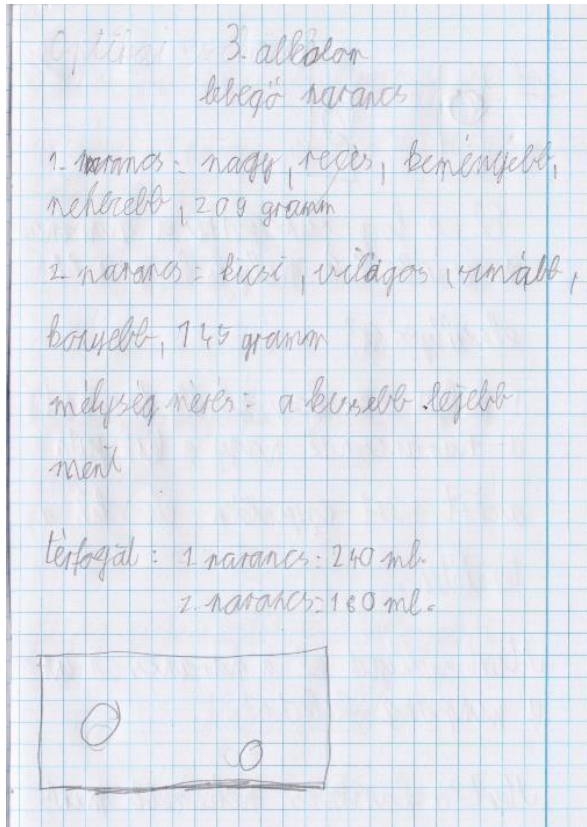 3. alkalom
lebegő narancs
1. narancs = nagy, recés, keményebb,
nehezebb, 209 gramm
2. narancs = kicsi, világos, simább,
konyebb, 149 gramm
mélység mérés = a kissebb lejebb
ment
térfogat : 1 narancs: 240 ml.
2. narancs: 180 ml.